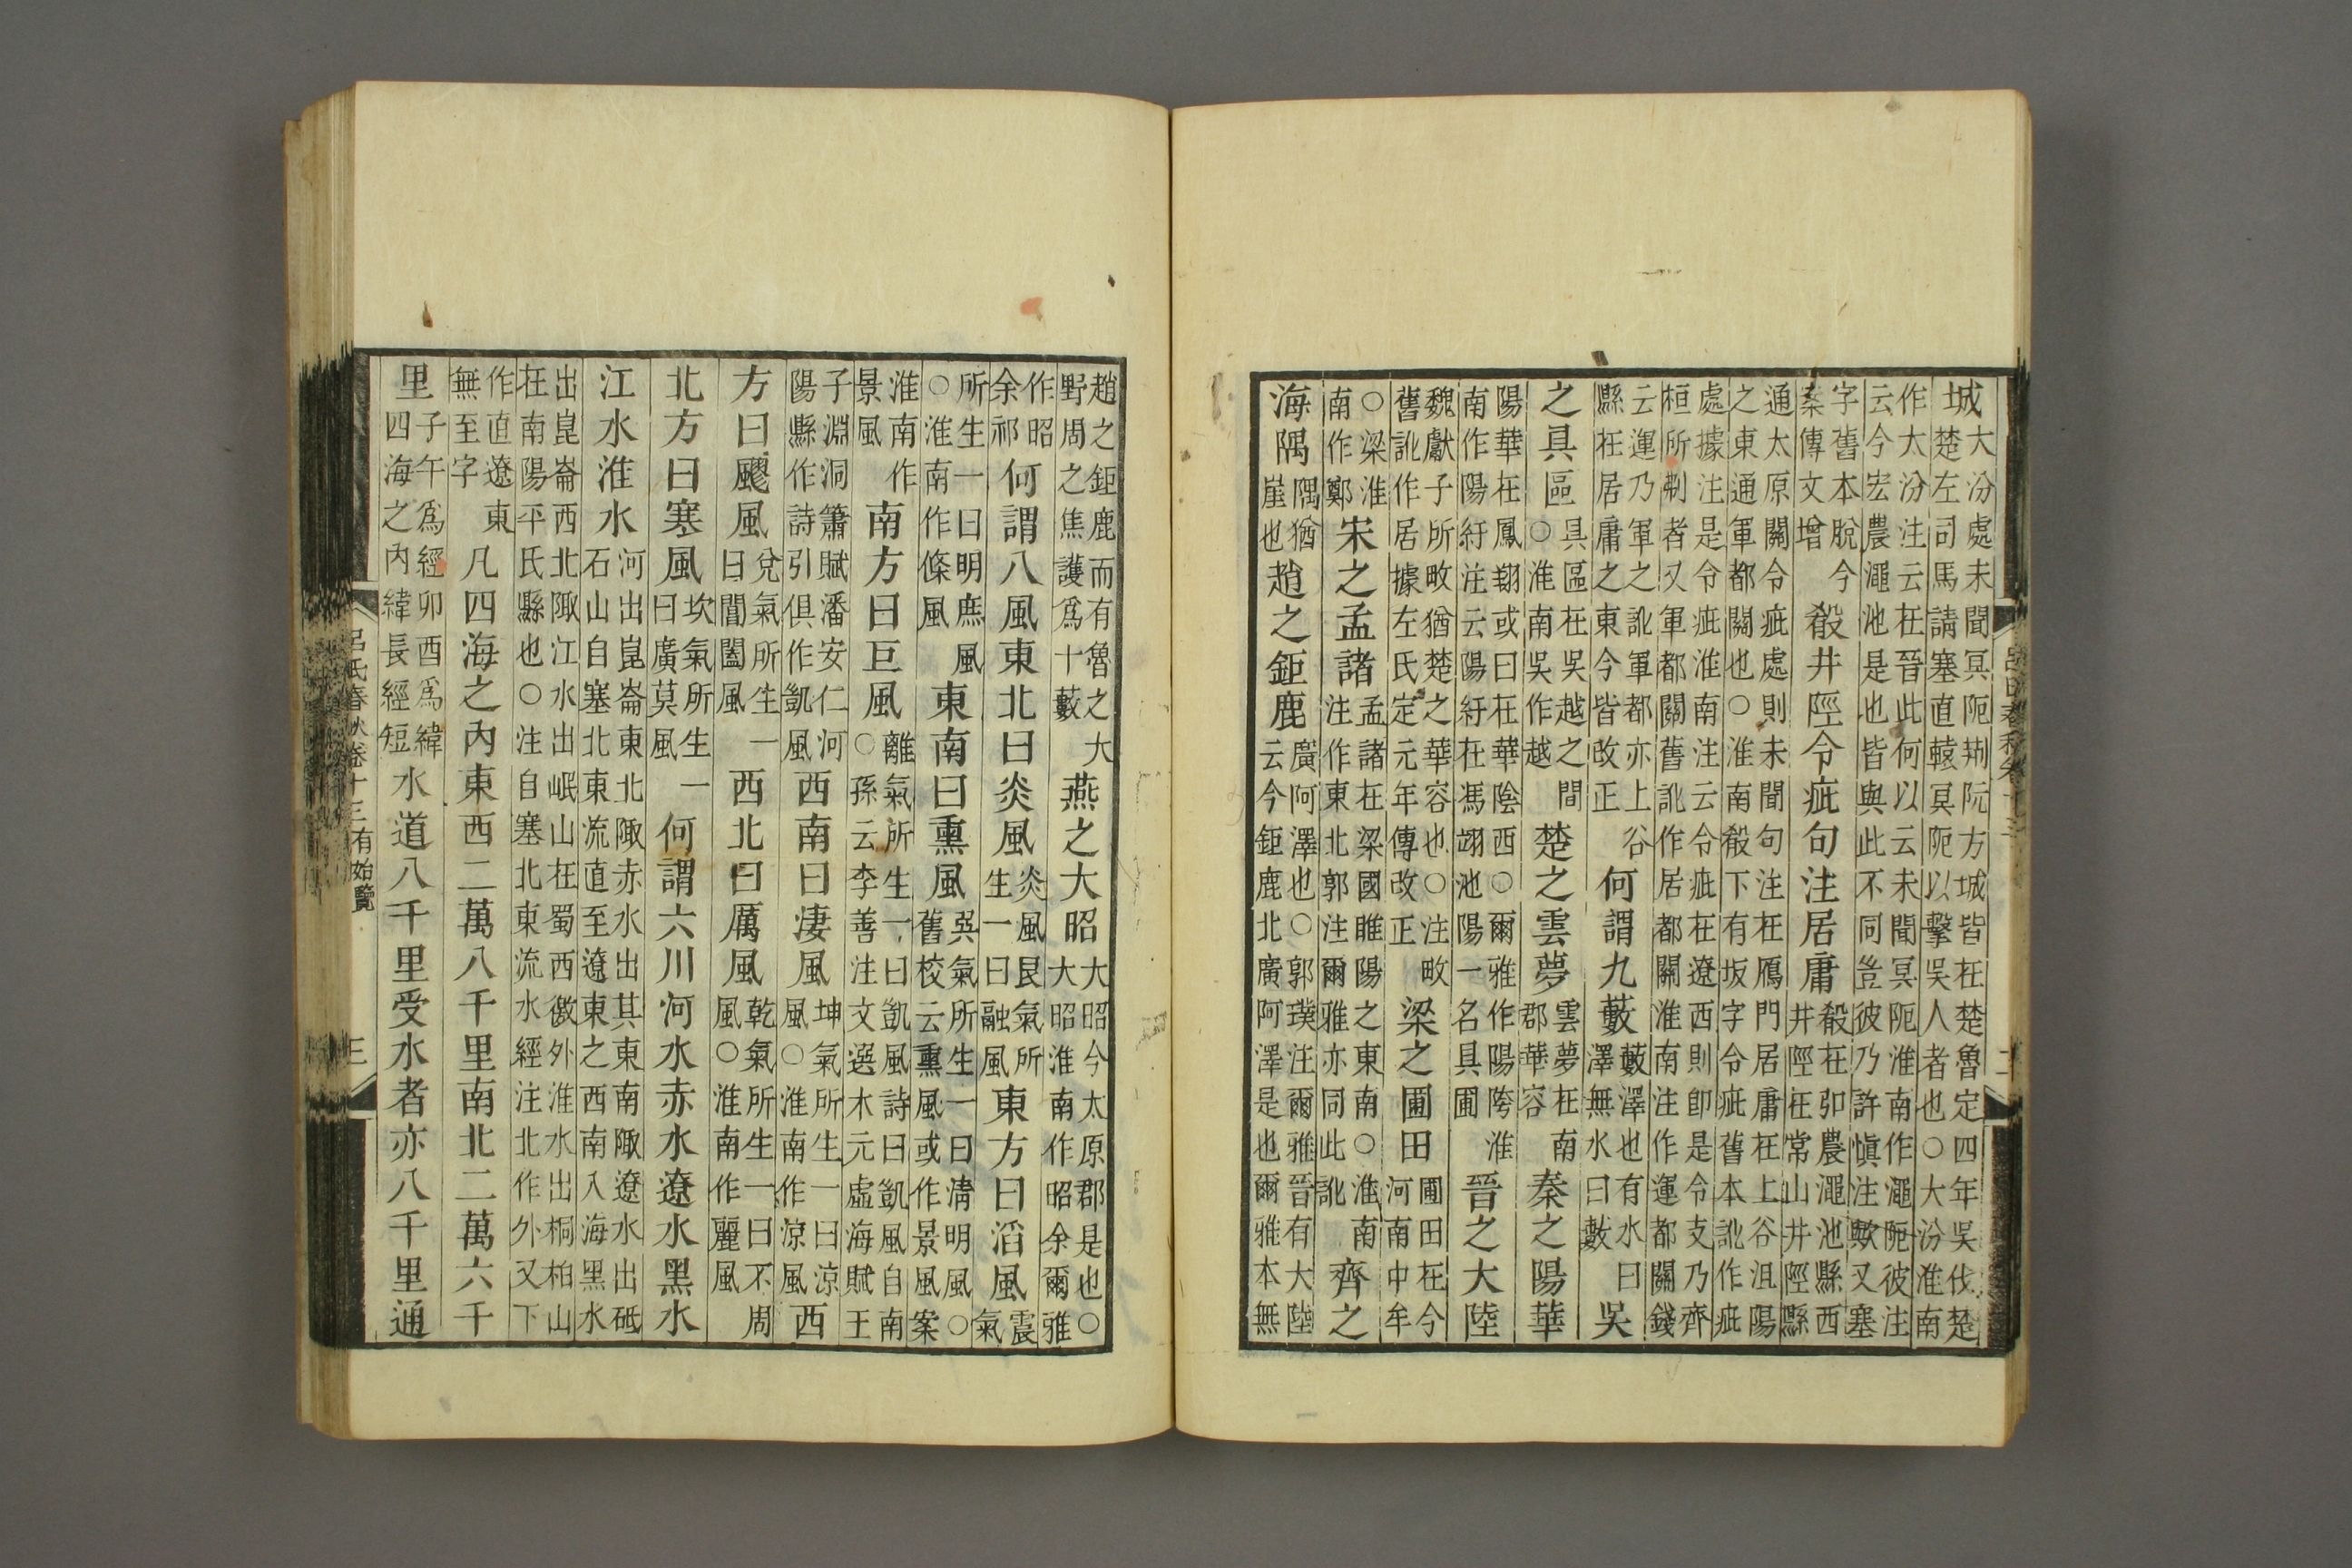 城大汾處未聞冥阨荆阮方城皆在楚魯定四年吳伐楚楚左司馬請塞直轅冥阨以擊吳人者也○大汾淮南
作太汾注云在晉此何以云未聞冥阨淮南作澠阨彼注云今宏農澠池是也皆與此不同豈彼乃許愼注歟又塞
字舊本脫今案傳文增殽井陘令疵句注居庸殽在弘農澠池縣西井陘在常山井陘縣
通太原關令疵處則未聞句注在鴈門居庸在上谷沮陽之東通軍都關也○淮南殽下有坂字令疵舊本訛作疵
處據注是令疵淮南注云令疵在遼西則卽是令支乃齊桓所刜者又軍都關舊訛作居都關淮南注作運都關錢
云運乃軍之訛軍都亦上谷縣在居庸之東今皆改正何謂九藪藪澤也有水曰澤無水曰藪吳
之具區具區在吳越之間○淮南吳作越楚之雲夢雲夢在南郡華容秦之陽華
陽華在鳳翔或曰在華陰西○爾雅作陽陓淮南作陽紆注云陽紆在馮翊池陽一名具圃晉之大陸
魏獻子所畋猶楚之華容也○注畋舊訛作居據左氏定元年傳改正梁之圃田圃田在今河南中牟
○梁淮南作鄭宋之孟諸孟諸在梁國睢陽之東南○淮南注作東北郭注爾雅亦同此訛齊之
海隅隅猶崖也趙之鉅鹿廣阿澤也○郭璞注爾雅晉有大陸云今鉅鹿北廣阿澤是也爾雅本無
趙之鉅鹿而有魯之大野周之焦護爲十藪燕之大昭大昭今太原郡是也○大昭淮南作昭余爾雅
作昭余祁何謂八風東北曰炎風炎風艮氣所生一曰融風東方曰滔風震氣
所生一曰明庶風○淮南作條風東南曰熏風巽氣所生一曰淸明風○舊校云熏風或作景風案
淮南作景風南方曰巨風離氣所生一曰凱風詩曰凱風自南○孫云李善注文選木元虛海賦王
子淵洞簫賦潘安仁河陽縣作詩引俱作凱風西南曰淒風坤氣所生一曰涼風○淮南作涼風西
方曰飂風兌氣所生一曰閶闔風西北曰厲風乾氣所生一曰不周風○淮南作麗風
北方曰寒風坎氣所生一曰廣莫風何謂六川河水赤水遼水黑水
江水淮水河出崑崙東北陬赤水出其東南陬遼水出砥石山自塞北東流直至遼東之西南入海黑水
出崑崙西北陬江水出岷山在蜀西徼外淮水出桐柏山在南陽平氏縣也○注自塞北東流水經注北作外又下
作直遼東無至字凡四海之內東西二萬八千里南北二萬六千
里子午爲經卯酉爲緯四海之內緯長經短水道八千里受水者亦八千里通
呂氏春秋卷十三有始覽 三